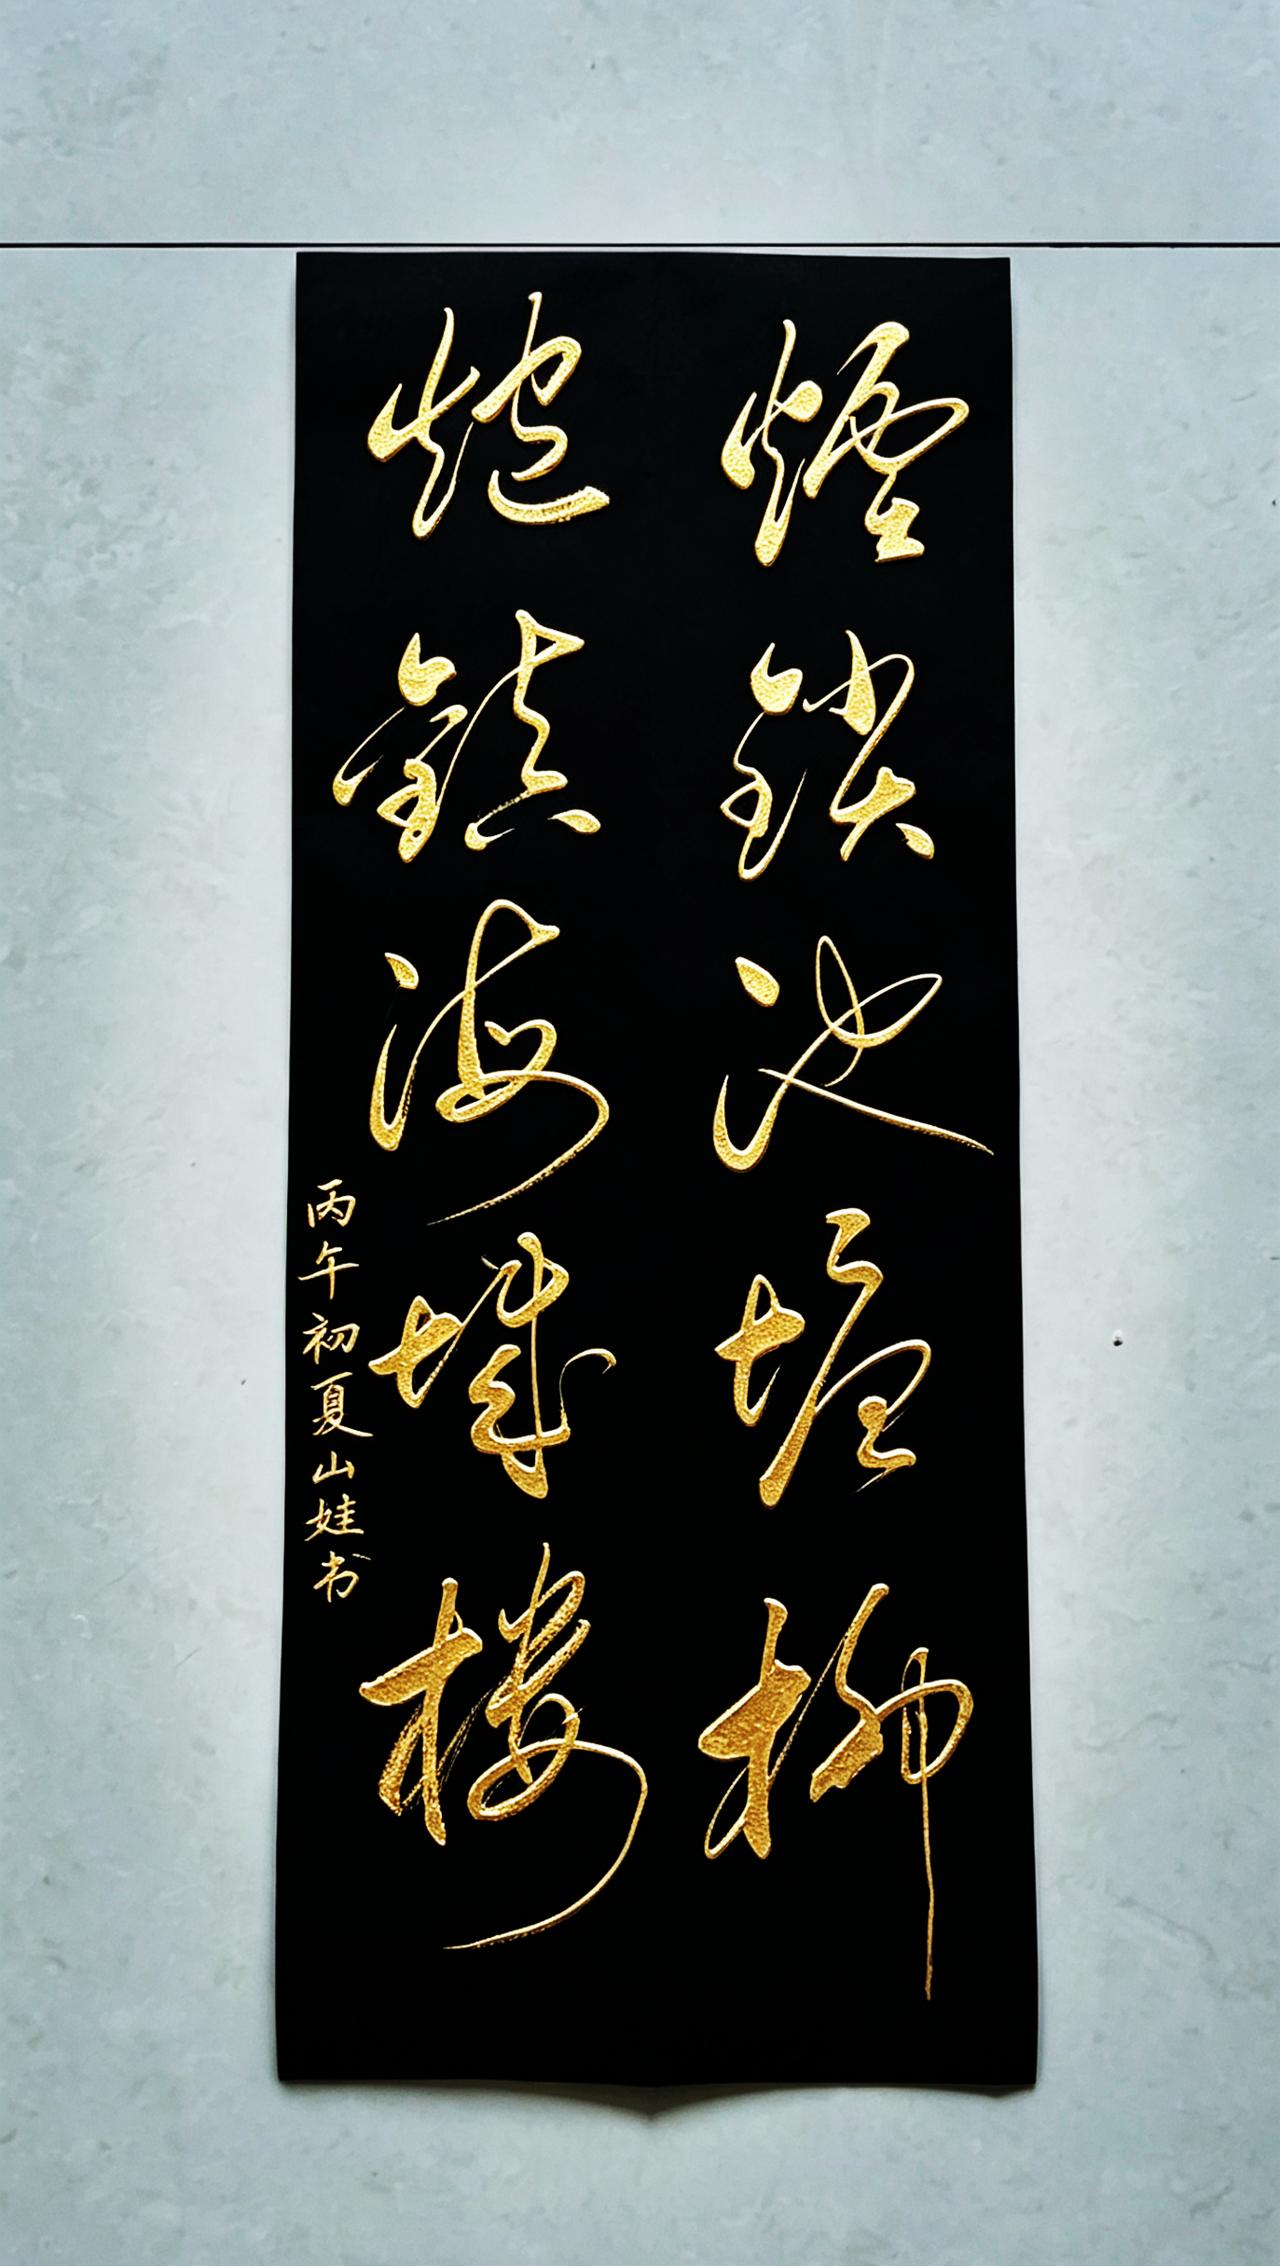 煙鎖池塘柳
炮鎮海城楼
丙午初夏山娃书